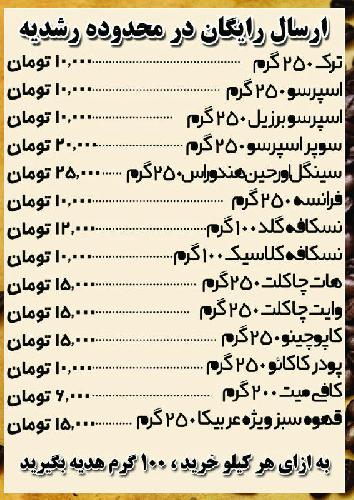 ارسال رایگان در محدوده رشدیه
ترک ۲۵۰ گرم ........ ۱۰,۰۰۰ تومان
اسپرسو ۲۵۰ گرم ........ ۱۰,۰۰۰ تومان
اسپرسو برزیل ۲۵۰ گرم ........ ۱۰,۰۰۰ تومان
سوپر اسپرسو ۲۵۰ گرم ........ ۲۰,۰۰۰ تومان
سینگل اورجین هندوراس ۲۵۰ گرم ........ ۲۵,۰۰۰ تومان
فرانسه ۲۵۰ گرم ........ ۱۰,۰۰۰ تومان
نسکافه گلد ۱۰۰ گرم ........ ۱۲,۰۰۰ تومان
نسکافه کلاسیک ۱۰۰ گرم ........ ۱۰,۰۰۰ تومان
هات چاکلت ۲۵۰ گرم ........ ۱۵,۰۰۰ تومان
وایت چاکلت ۲۵۰ گرم ........ ۱۵,۰۰۰ تومان
کاپوچینو ۲۵۰ گرم ........ ۱۵,۰۰۰ تومان
پودر کاکائو ۲۵۰ گرم ........ ۱۰,۰۰۰ تومان
کافی میت ۲۰۰ گرم ........ ۶,۰۰۰ تومان
قهوه سبز ویژه عربیکا ۲۵۰ گرم ........ ۱۵,۰۰۰ تومان
به ازای هر کیلو خرید ، ۱۰۰ گرم هدیه بگیرید